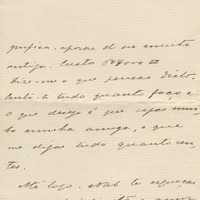 gnifica, apezar de ser muito
antigo. Custa
Dize-me o que pensas disto.
Conto-te tudo quanto faço e
o que desejo é que sejas mui-
to minha amiga, e que
me digas tudo quanto sen-
tes.
Até logo. Não te esqueças